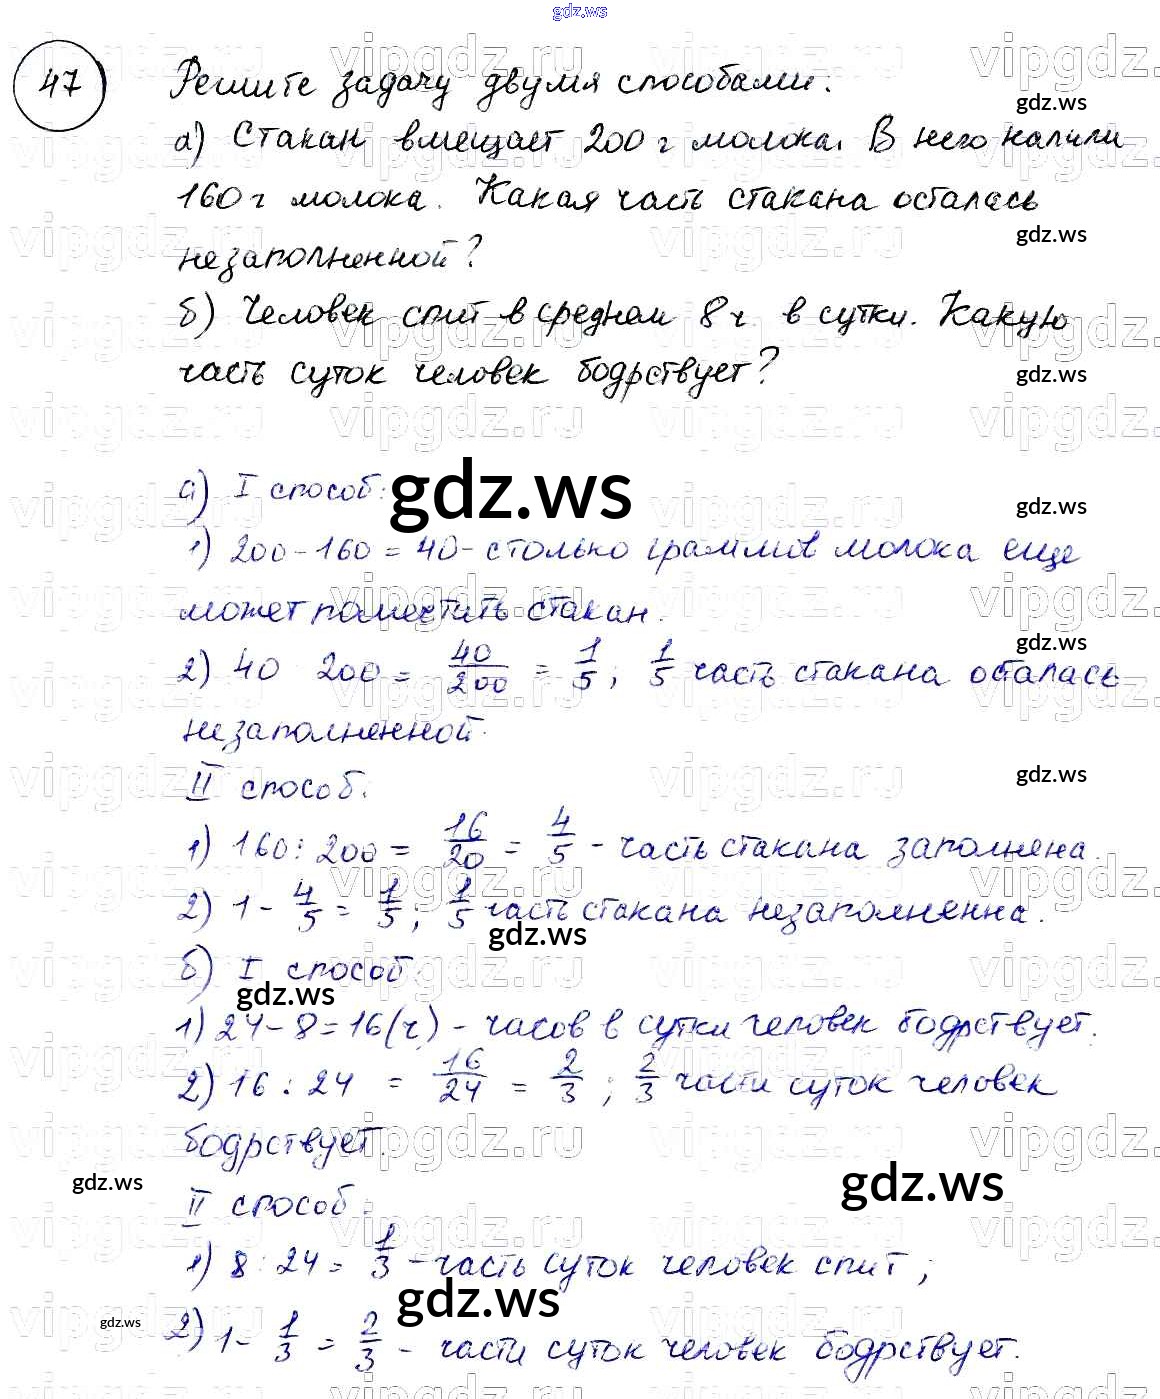 gdz.ws
47 Решите задачу двумя способами:
а) Стакан вмещает 200 г молока. В него налили
160 г молока. Какая часть стакана осталась
незаполненной?
б) Человек спит в среднем 8 ч в сутки. Какую
часть суток человек бодрствует?
а) I способ:
1) 200 - 160 = 40 - столько граммов молока еще
может поместить стакан.
2) 40 200 = 40/200 = 1/5; 1/5 часть стакана осталась
незаполненной.
II способ.
1) 160 : 200 = 16/20 = 4/5 - часть стакана заполнена.
2) 1 - 4/5 = 1/5; 1/5 часть стакана незаполненна.
б) I способ
1) 24 - 8 = 16 (ч) - часов в сутки человек бодрствует.
2) 16 : 24 = 16/24 = 2/3; 2/3 части суток человек
бодрствует.
II способ:
1) 8 : 24 = 1/3 - часть суток человек спит;
2) 1 - 1/3 = 2/3 - части суток человек бодрствует.
gdz.ws
gdz.ws
gdz.ws
gdz.ws
gdz.ws
gdz.ws
gdz.ws
gdz.ws
gdz.ws
gdz.ws
gdz.ws
gdz.ws
gdz.ws
vipgdz.ru